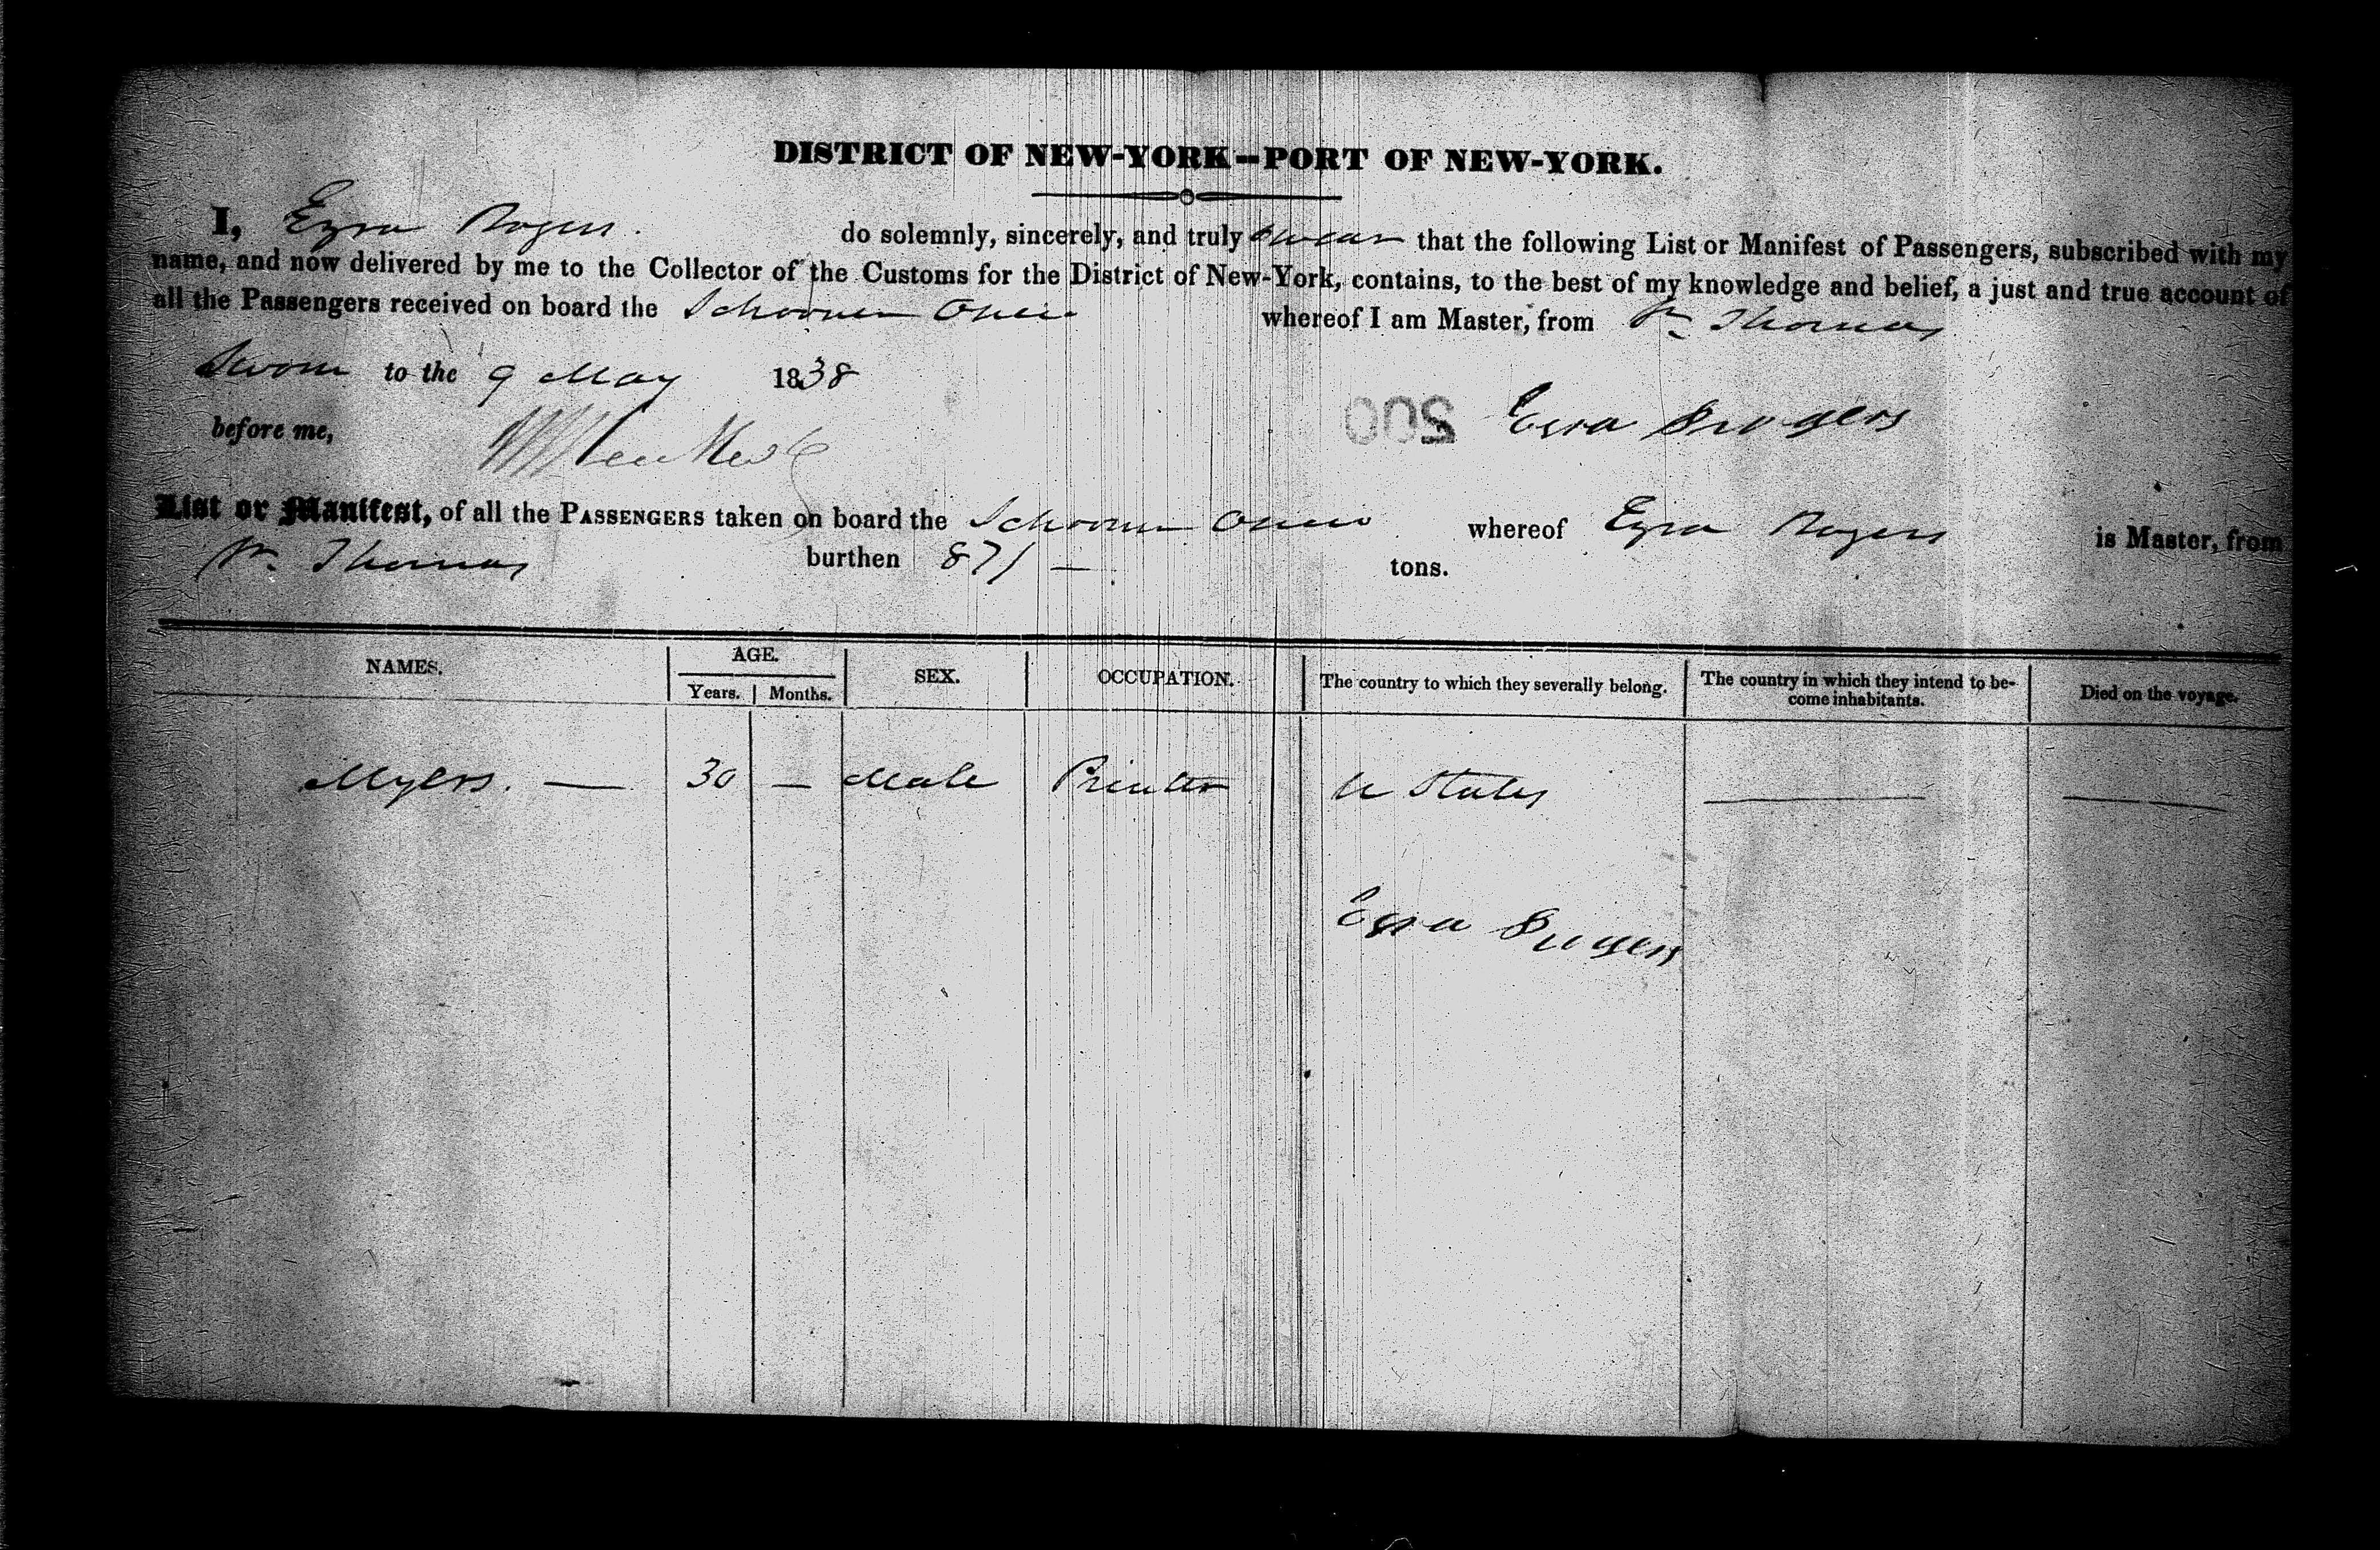 DISTRICT OF NEW-YORK—PORT OF NEW-YORK.
I, Ezra Rogers. do solemnly, sincerely, and truly swear that the following List or Manifest of Passengers, subscribed with my
name, and now delivered by me to the Collector of the Customs for the District of New-York, contains, to the best of my knowledge and belief, a just and true account of
all the Passengers received on board the Schooner whereof I am Master, from St. Thomas
Sworn to the 9 May 1838
before me,
200 Ezra Rogers
List or Manifest, of all the PASSENGERS taken on board the Schooner whereof Ezra Rogers is Master, from
St. Thomas burthen 871 — tons.
NAMES. AGE. SEX. OCCUPATION. The country to which they severally belong. The country in which they intend to be- Died on the voyage.
Years. Months. come inhabitants.
Myers. — 30 — Male Printer U States — —
Ezra Rogers